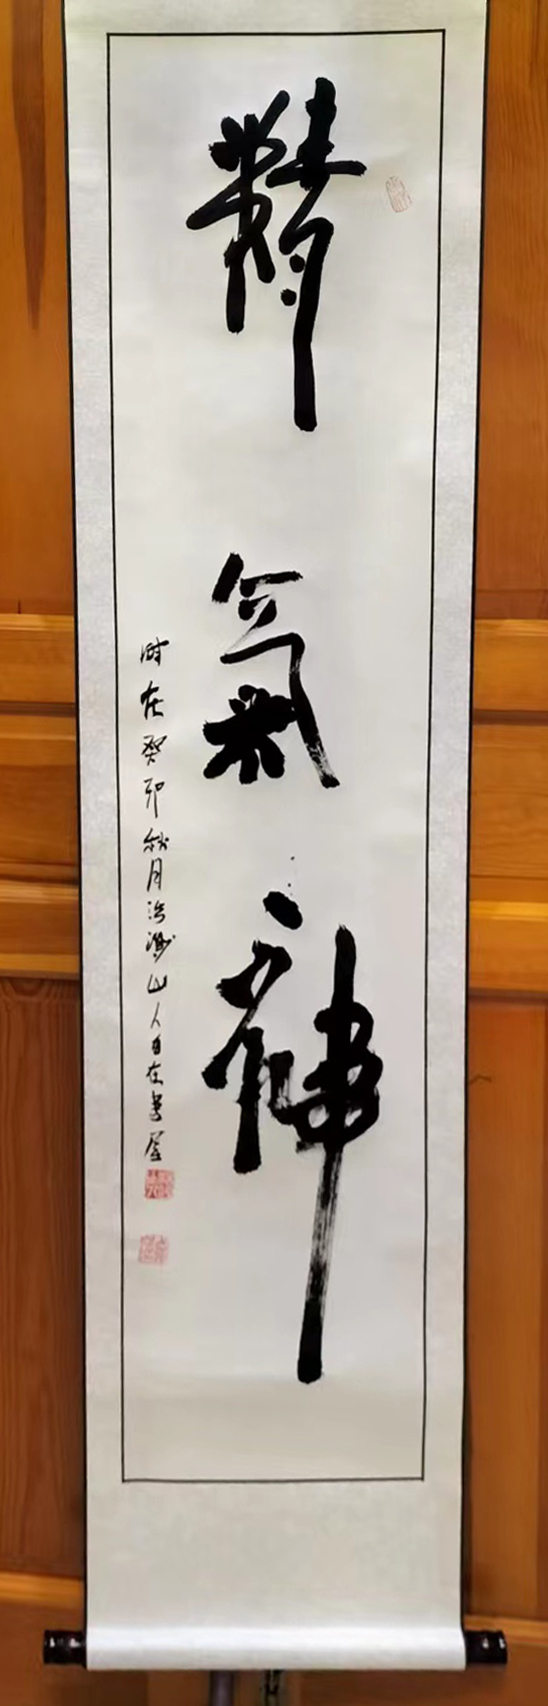 精氣神
时在癸卯秋月浩瀚山人自在書屋